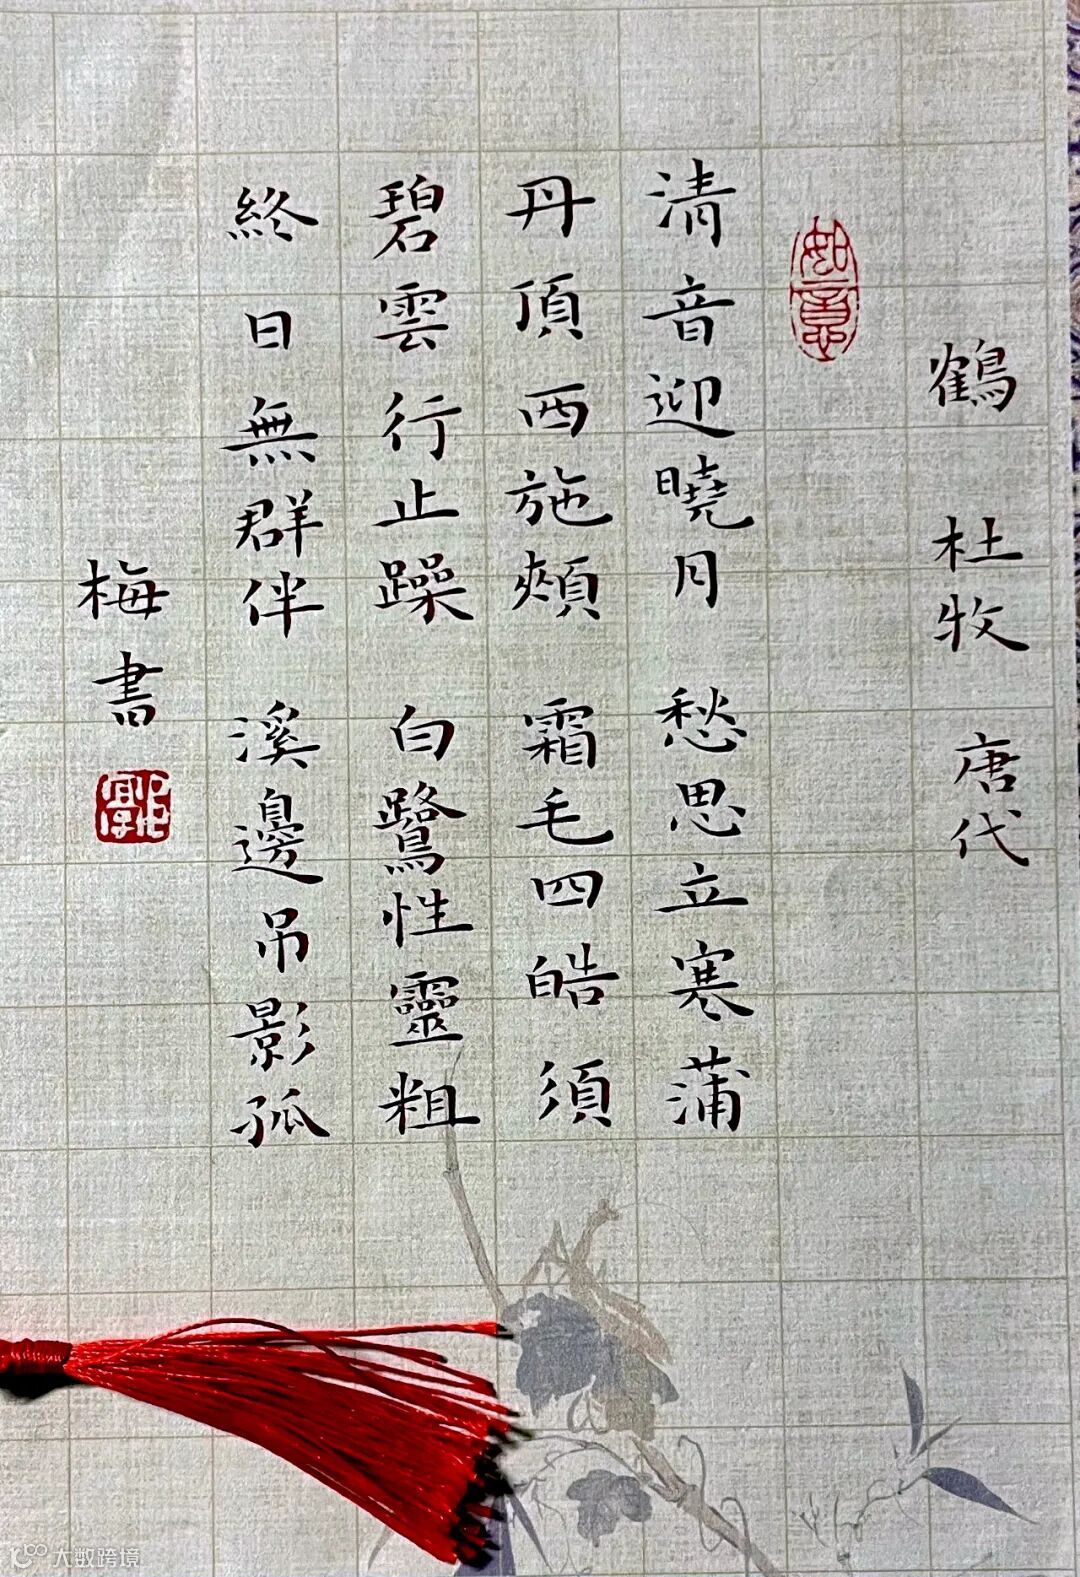 鶴 杜牧 唐代
如意
清音迎曉月 愁思立寒蒲
丹頂西施頰 霜毛四皓須
碧雲行止躁 白鷺性靈粗
終日無群伴 溪邊吊影孤
梅書
大数跨境